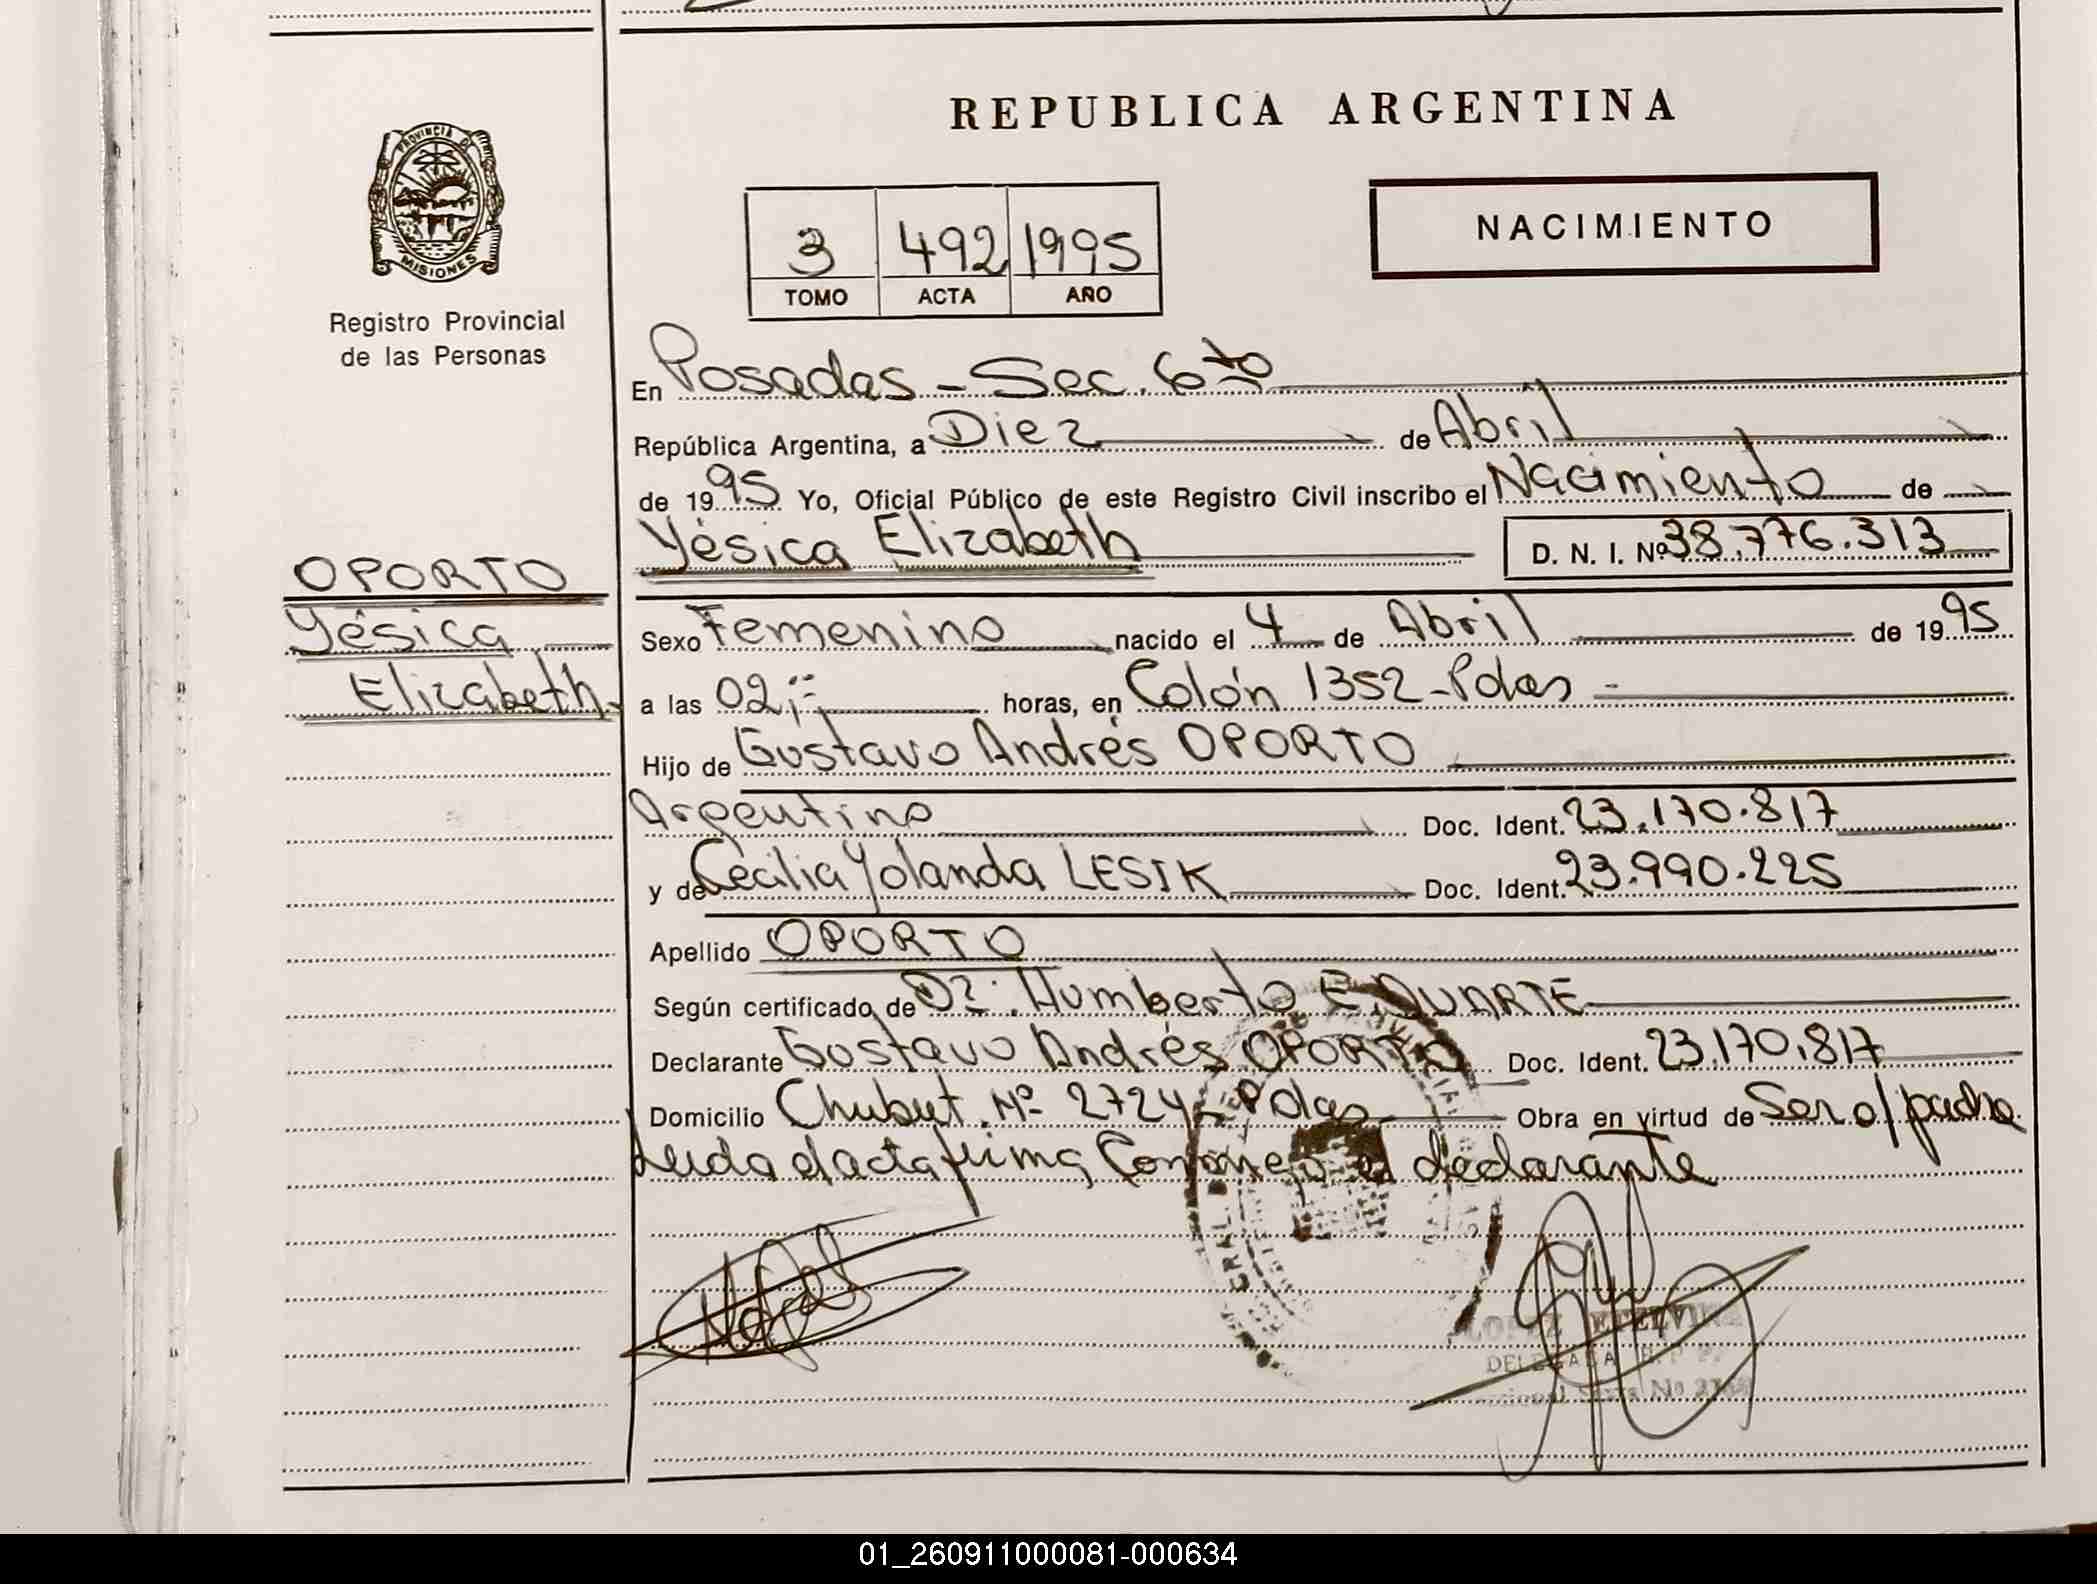 REPUBLICA ARGENTINA
PROVINCIA DE
MISIONES
Registro Provincial
de las Personas
3 492 1995
TOMO ACTA AÑO
NACIMIENTO
En Posadas - Sec. 6to
República Argentina, a Diez de Abril
de 1995 Yo, Oficial Público de este Registro Civil inscribo el Nacimiento de
Yésica Elizabeth D. N. I. Nº 38.776.313
OPORTO
Yésica
Elizabeth
Sexo Femenino nacido el 4 de Abril de 1995
a las 02 horas, en Colón 1352 - Pdas -
Hijo de Gustavo Andrés OPORTO
Argentino Doc. Ident. 23.170.817
y de Cecilia Yolanda LESIK Doc. Ident. 23.990.225
Apellido OPORTO
Según certificado de Dr. Humberto E. DUARTE
Declarante Gustavo Andrés OPORTO Doc. Ident. 23.170.817
Domicilio Chubut Nº 2724 - Pdas Obra en virtud de Ser el padre
Leida el acta firma Conmigo el declarante
LOPEZ ETELVINA
DELEGADA R. P. P.
01_260911000081-000634